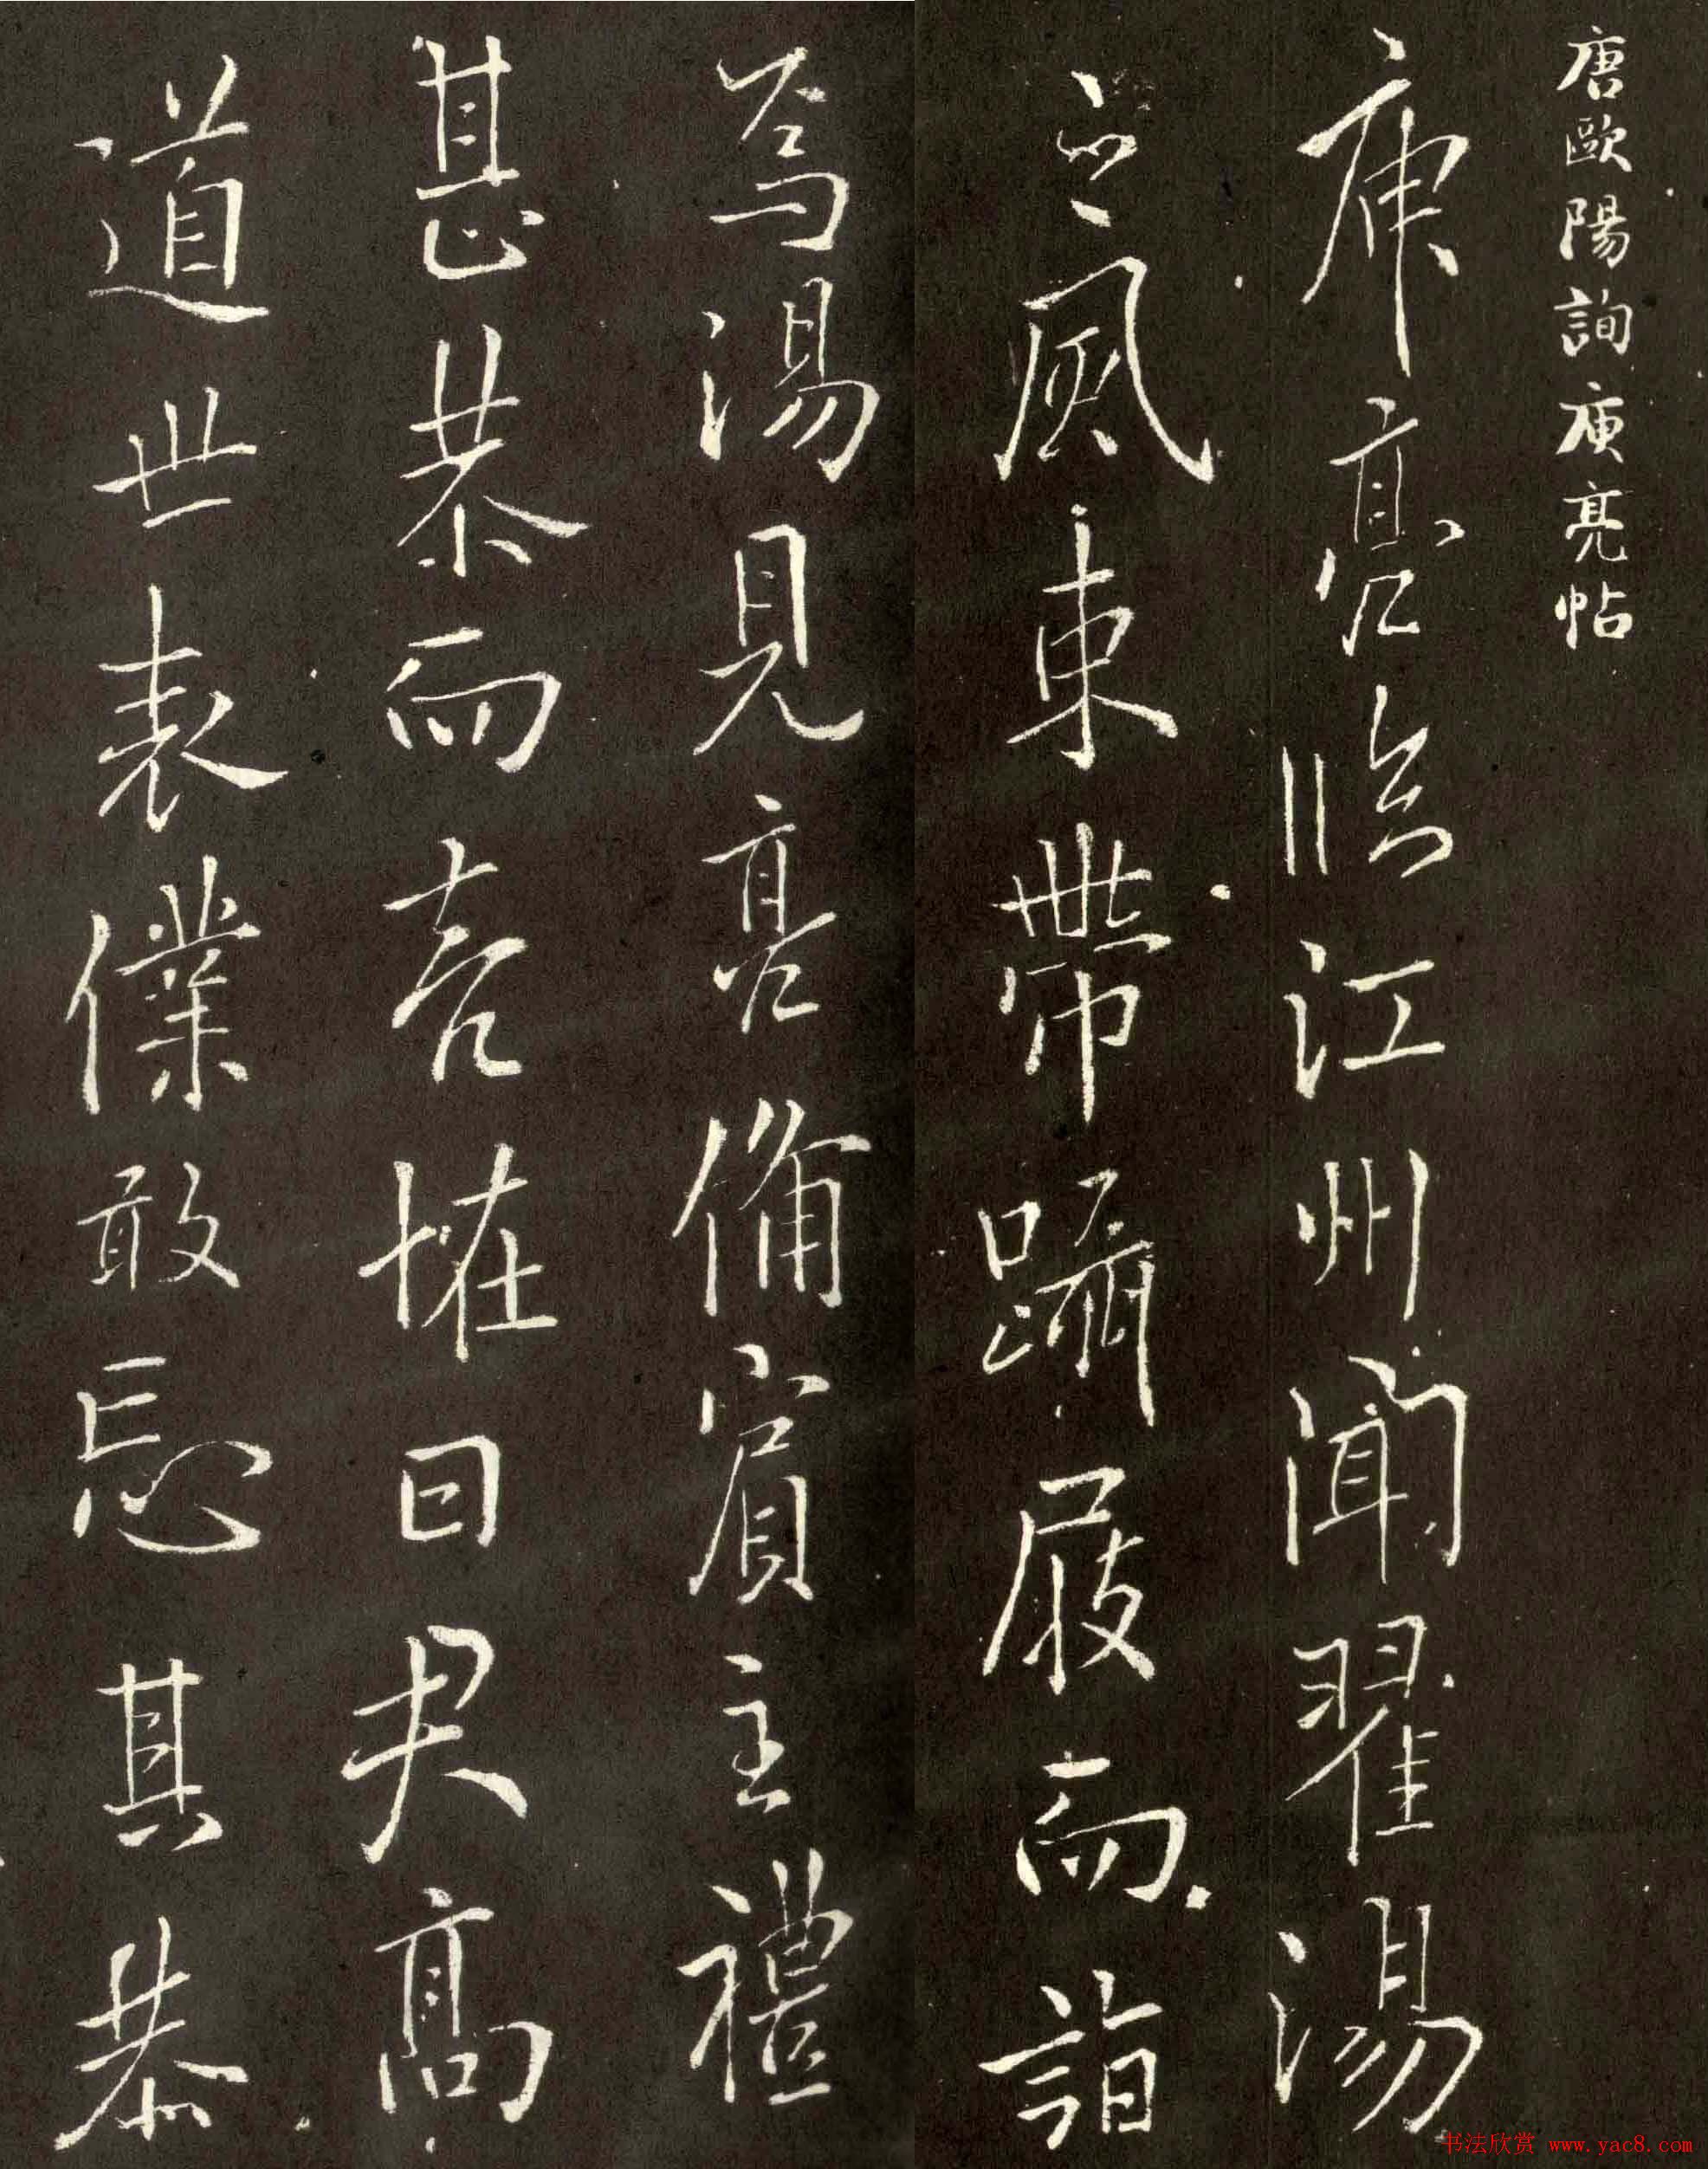 唐歐陽詢庾亮帖
庾亮臨江州聞翟湯
之風束帶躡屐而詣
焉湯見亮備賓主禮
甚恭而恠曰君高
道世表僕敢忘其恭
书法欣赏 www.yac8.com